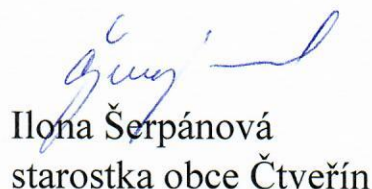 Ilona Šerpánová
starostka obce Čtveřín